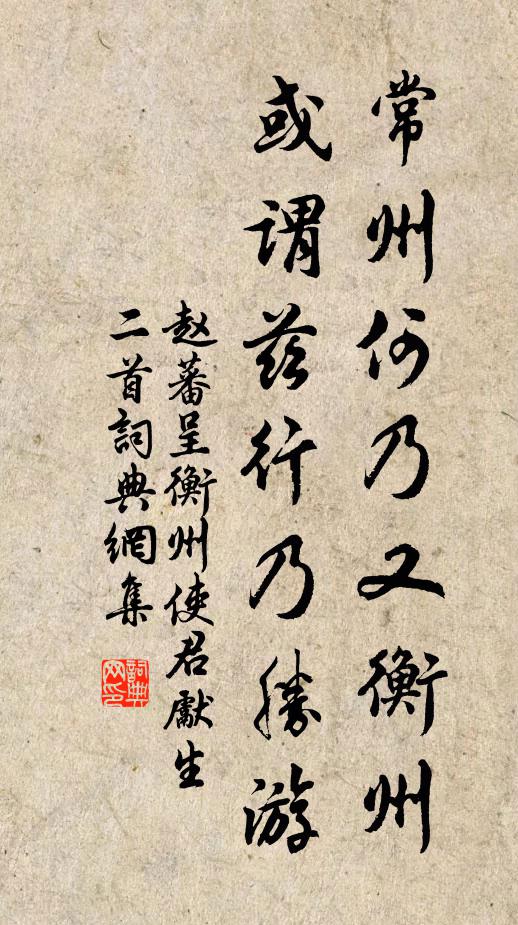 常州何乃又衡州
或谓兹行乃勝游
赵蕃呈衡州使君獻生
二首詞典網集
詞典网印